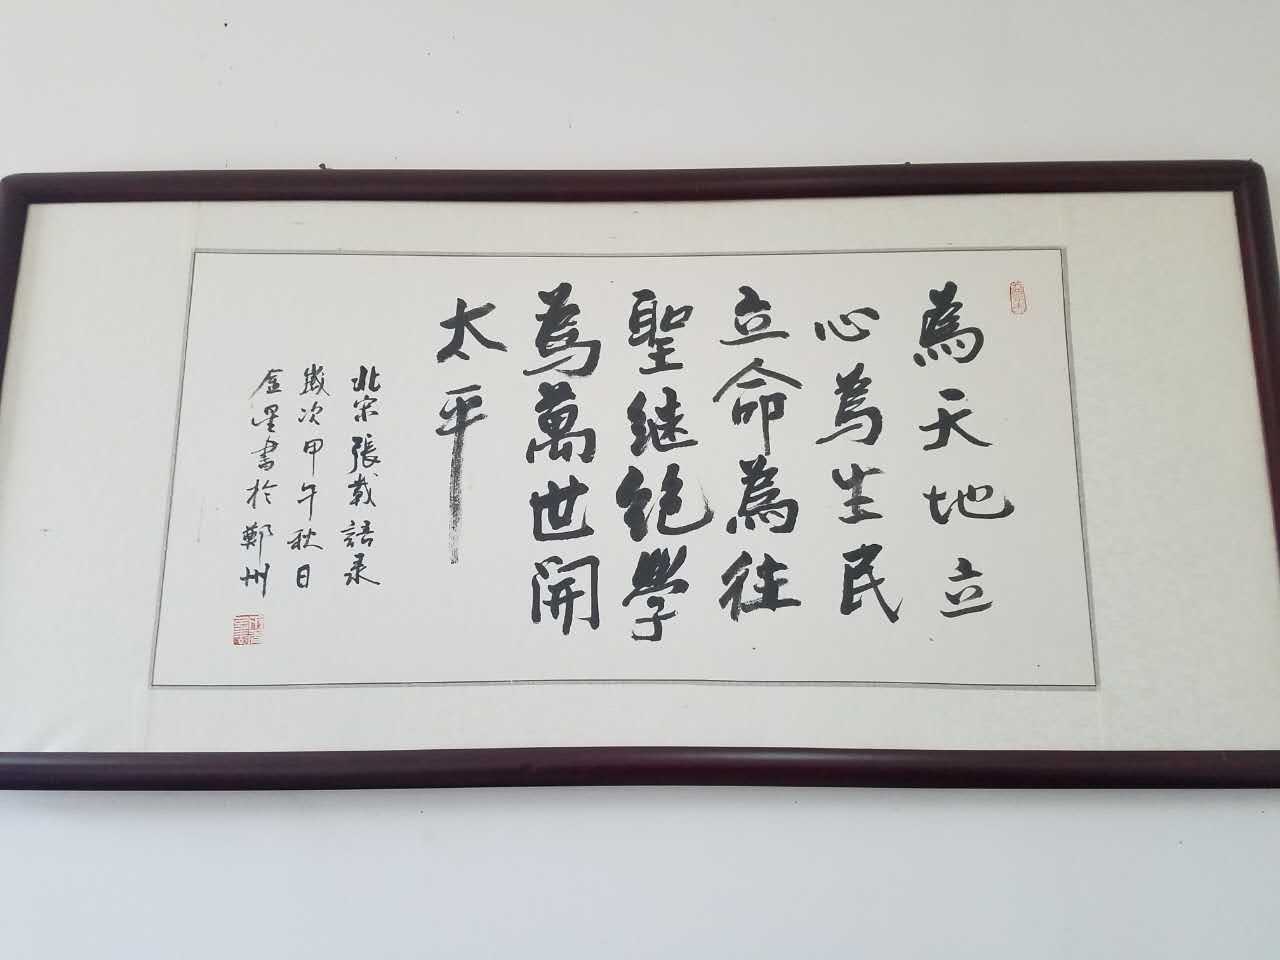 為天地立
心為生民
立命為往
聖继絶學
為萬世開
太平
北宋張載語录
歲次甲午秋日
金星書於鄭州